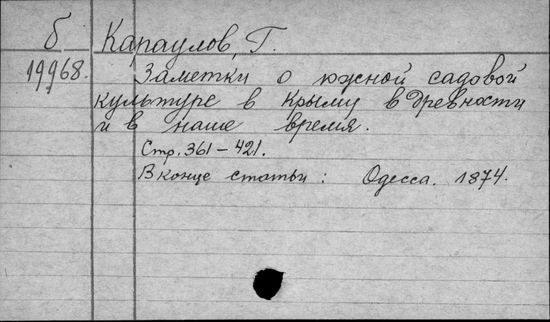 б Караулов, Г.
19968. Заметки о южной садовой
культуре в Крыму в древности
и в наше время.
Стр. 361 – 421.
В конце статьи: Одесса. 1874.